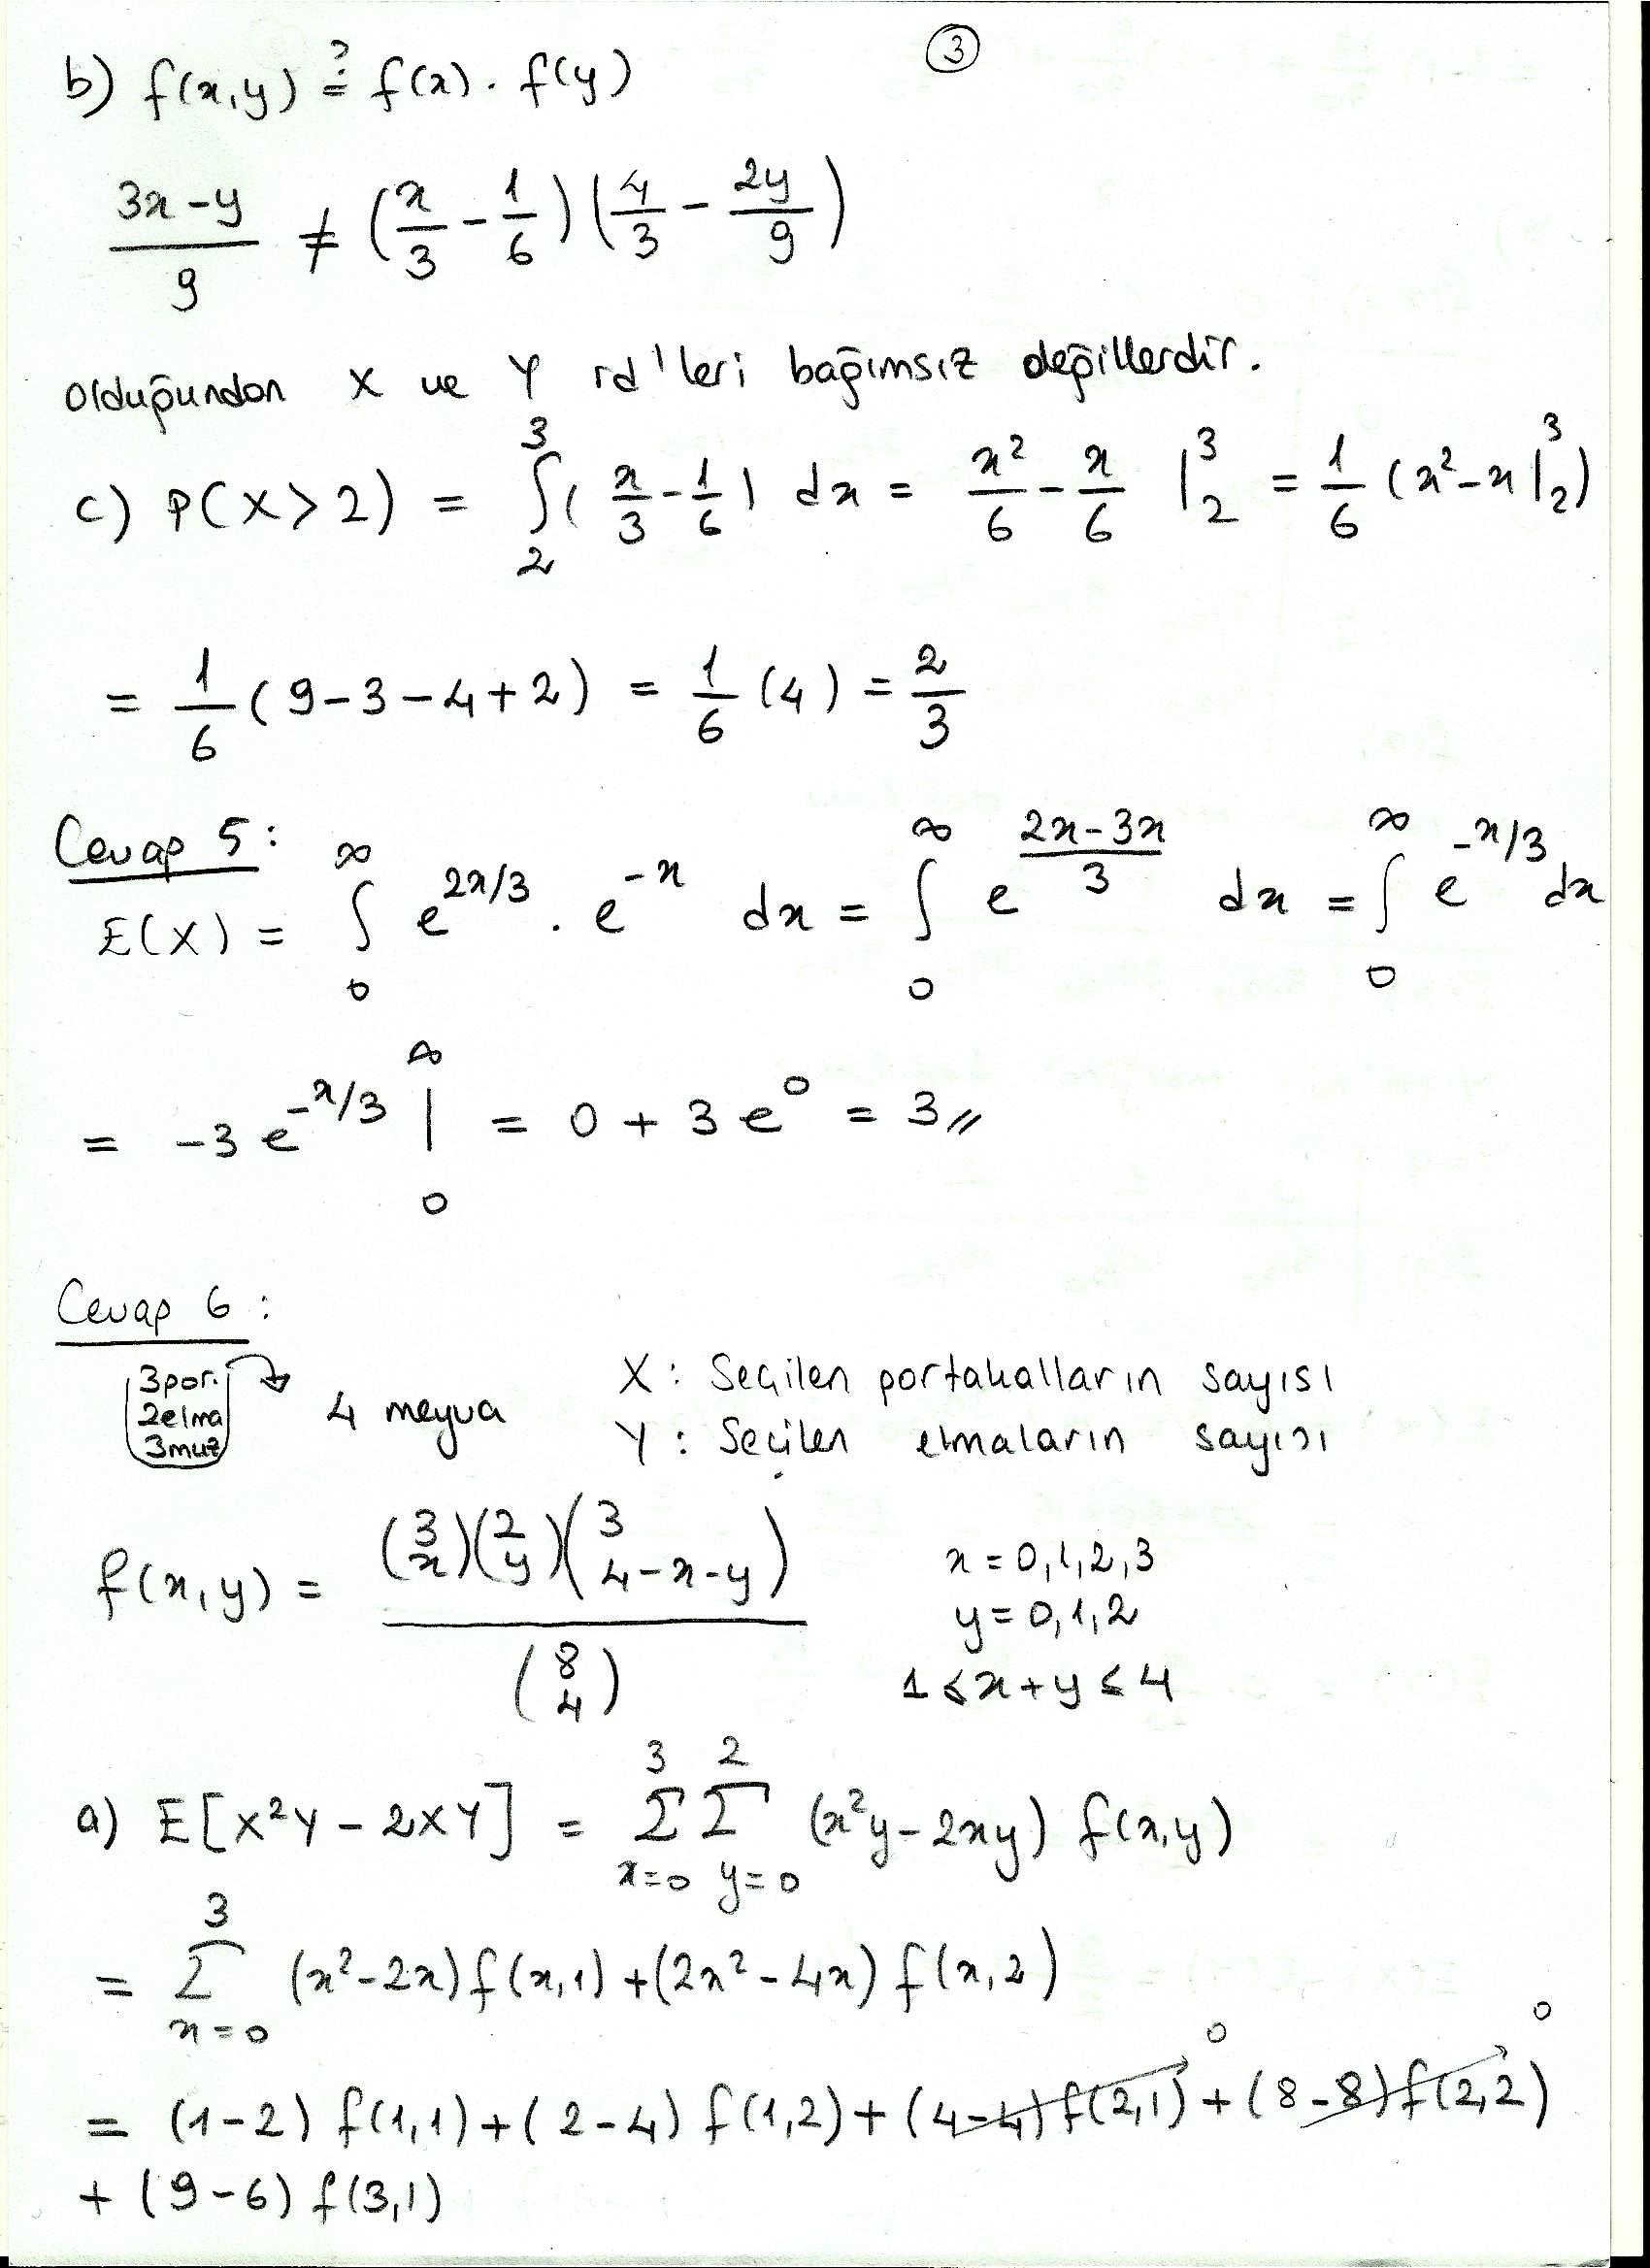 3
b) f(x,y) ≟ f(x) . f(y)
(3x-y)/9 ≠ (x/3 - 1/6) (4/3 - 2y/9)
olduğundan X ve Y rd'leri bağımsız değillerdir.
c) P(X>2) = ∫₂³ (x/3 - 1/6) dx = x²/6 - x/6 |₂³ = 1/6 (x²-x|₂³)
= 1/6 (9-3-4+2) = 1/6 (4) = 2/3
Cevap 5:
E(X) = ∫₀^∞ e^(2x/3) . e^(-x) dx = ∫₀^∞ e^((2x-3x)/3) dx = ∫₀^∞ e^(-x/3) dx
= -3 e^(-x/3) |₀^∞ = 0 + 3e⁰ = 3//
Cevap 6 :
3por.
2elma
3muz
4 meyva
X : Seçilen portakalların sayısı
Y : Seçilen elmaların sayısı
f(x,y) = (3 x)(2 y)(3 4-x-y) / (8 4)
x = 0,1,2,3
y = 0,1,2
1 ≤ x+y ≤ 4
a) E[X²Y - 2XY] = Σ_(x=0)^3 Σ_(y=0)^2 (x²y - 2xy) f(x,y)
= Σ_(x=0)^3 (x²-2x) f(x,1) + (2x²-4x) f(x,2)
= (1-2) f(1,1) + (2-4) f(1,2) + (4-4) f(2,1) 0 + (8-8) f(2,2) 0
+ (9-6) f(3,1)